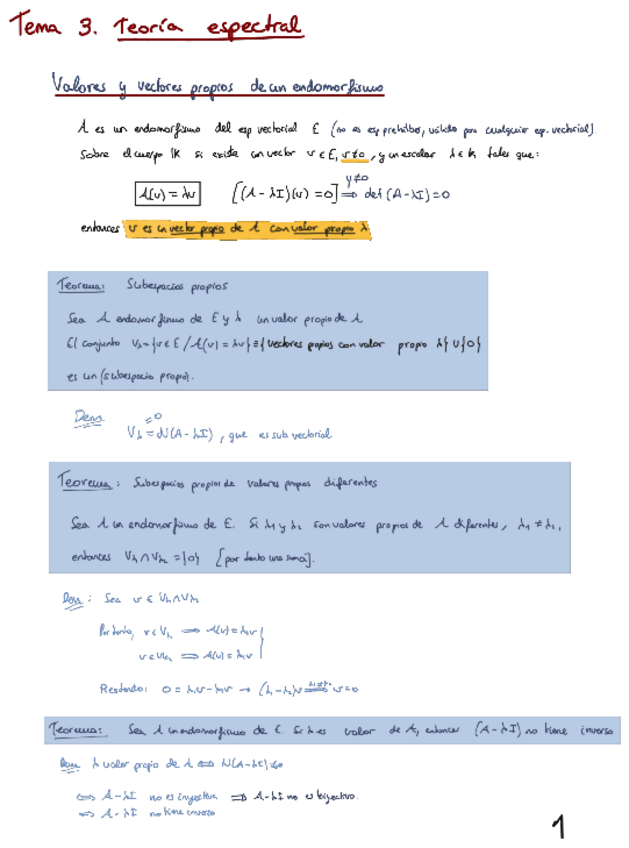 Tema 3. Teoría espectral
Valores y vectores propios de un endomorfismo
A es un endomorfismo del esp vectorial E (no es esp prehilber, válido para cualquier esp. vectorial)
Sobre el cuerpo IK si existe un vector v ∈ E, v≠0, y un escalar λ ∈ IK tales que:
A(v) = λv [(A - λI)(v) = 0] v≠0 ⟹ det (A-λI) = 0
entonces v es un vector propio de A con valor propio λ
Teorema: Subespacios propios
Sea A endomorfismo de E y λ un valor propio de A
El conjunto Vλ = {v ∈ E / A(v) = λv} ≡ {vectores propios con valor propio λ} ∪ {0}
es un (subespacio propio).
Dem
Vλ = N(A-λI), que es sub vectorial
Teorema: Subespacios propios de valores propios diferentes
Sea A un endomorfismo de E. Si λ1 y λ2 son valores propios de A diferentes, λ1 ≠ λ2,
entonces Vλ1 ∩ Vλ2 = {0} [por tanto una suma].
Dem: Sea v ∈ Vλ1 ∩ Vλ2
Por tanto, v ∈ Vλ1 ⟹ A(v) = λ1v
v ∈ Vλ2 ⟹ A(v) = λ2v
Restando: 0 = λ1v - λ2v → (λ1-λ2)v λ1≠λ2 ⟹ v=0
Teorema: Sea A un endomorfismo de E. Si λ es valor de A, entonces (A-λI) no tiene inverso
Dem λ valor propio de A ⟺ N(A-λI)≠0
⟺ A-λI no es inyectiva ⟹ A-λI no es biyectivo.
⟹ A-λI no tiene inverso
1